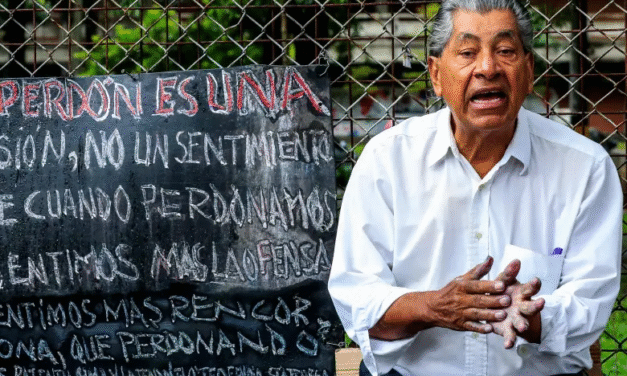 PERDÓN ES UNA
SIÓN, NO UN SENTIMIENTO
E CUANDO PERDONAMOS
ENTIMOS MAS LA OFENSA
ENTIMOS MAS RENCOR
ONA, QUE PERDONANDO